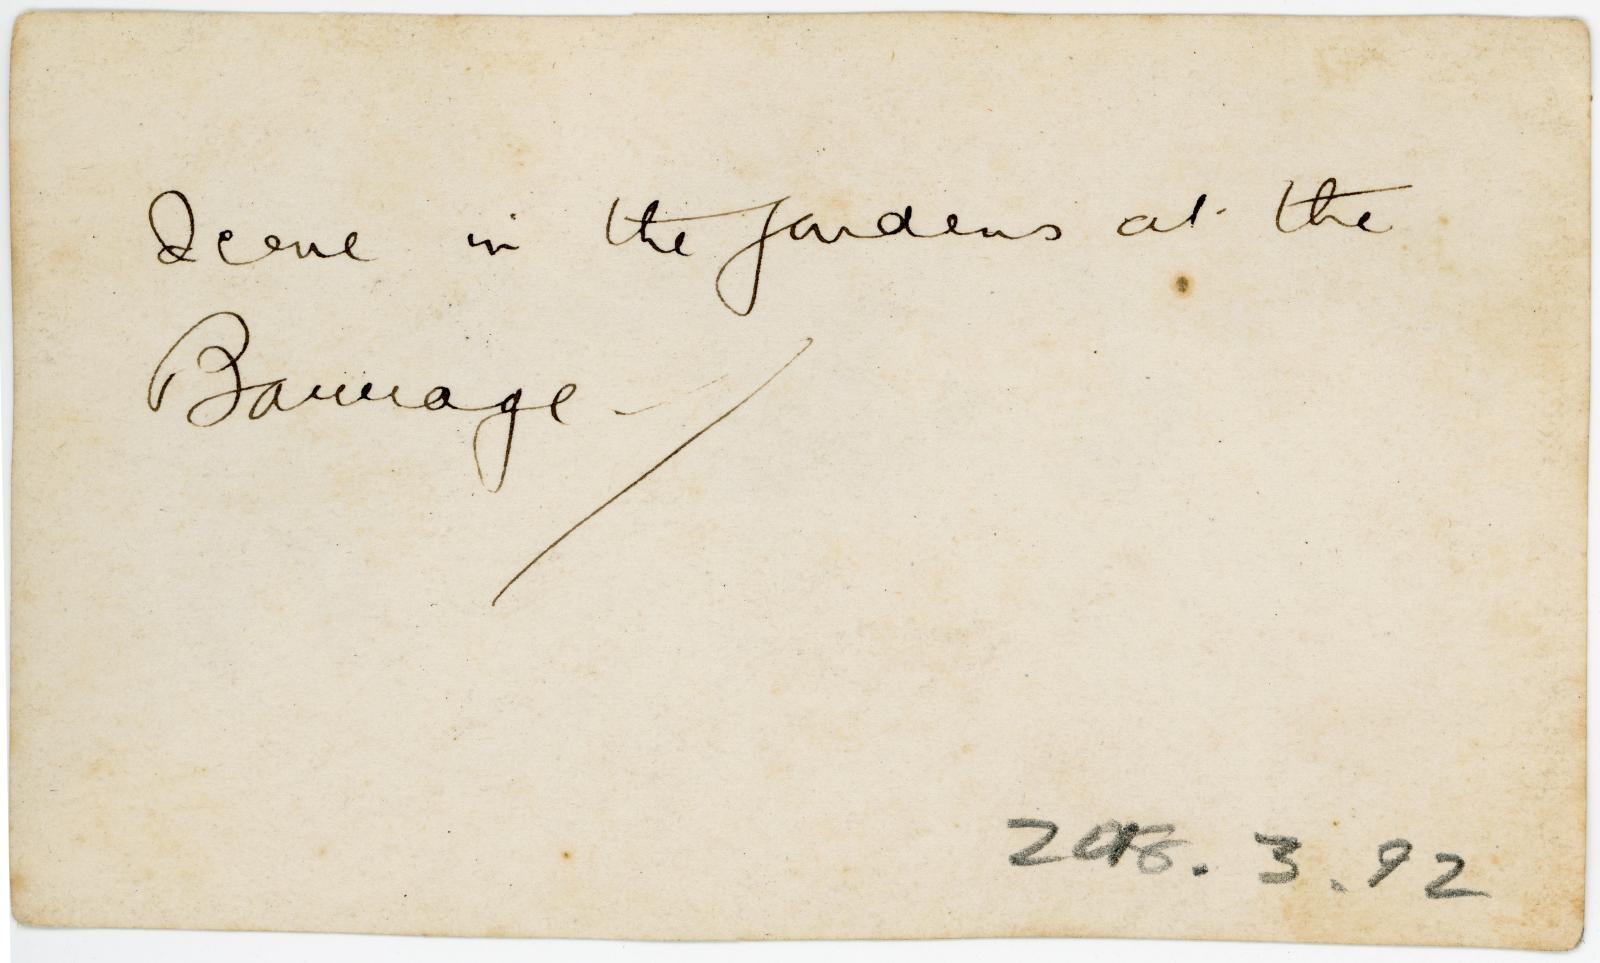 Scene in the gardens at the
Barrage -
2018.3.92